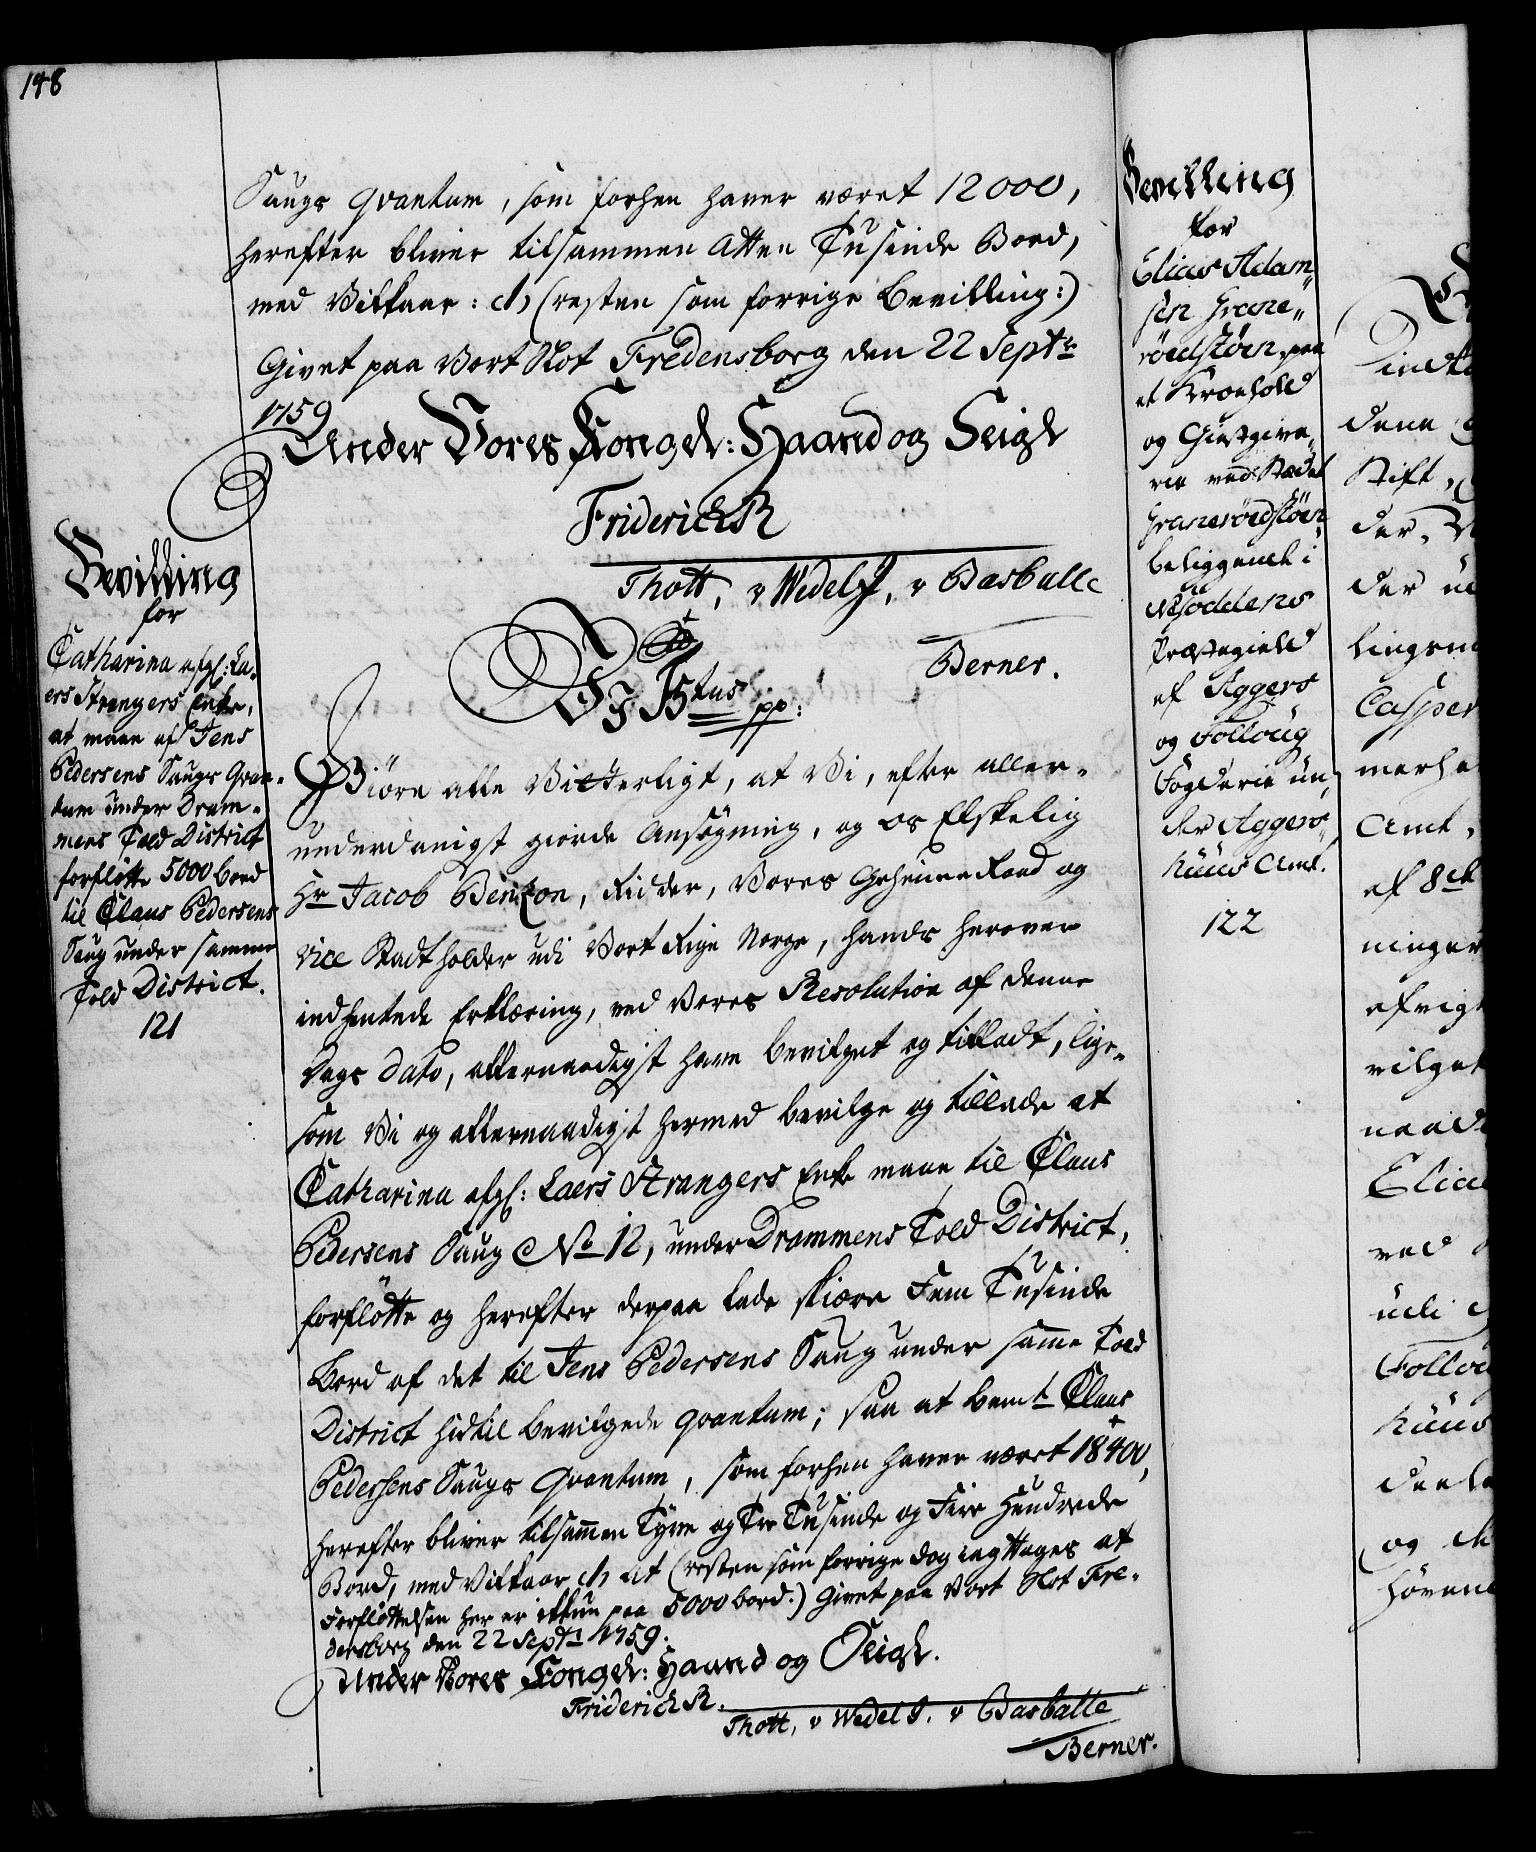 148
Saugs Qvantum, som forhen haver været 12000,
herefter bliver tilsammen Atten Tusinde Bord,
med Vilkaar: (resten som forrige Bevilling:)
Givet paa Vort Slot Fredensborg den 22 Septr
1759
Under Vores Kongel: Haand og Seigl
Friderich R
Thott, v Wedel J, v Basballe
Berner.
Bevilling
for
Catharina afgl: La-
ers Strangers Enke,
at maae af Jens
Pedersens Saugs Qvan-
tum under Dram-
mens Told District
forflötte 5000 bord
til Claus Pedersens
Saug under samme
Told District.
121
Vi F 5tus pp:
Giöre alle Vitterligt, at Vi, efter aller-
underdanigst giorde Ansögning, og os Elskelig
Hr Jacob Benzon, Ridder, Vores Geheime Raad og
Vice Stadtholder udi Vort Rige Norge, hands herover
indhentede Erklæring, ved Vores Resolution af denne
Dags Dato, allernaadigst have bevilget og tilladt, lige-
som Vi og allernaadigst hermed bevilge og tillade at
Catharina afgl: Laers Strangers Enke maae til Claus
Pedersens Saug No 12, under Drammens Told District,
forflötte og herefter derpaa lade skiære Fem Tusinde
Bord af det til Jens Pedersens Saug under samme Told
District hidtil bevilgede qvantum; saa at bemte Claus
Pedersens Saugs Qvantum, som forhen haver været 18400,
herefter bliver tilsammen Tyve og Tre Tusinde og Fire Hundrede
Bord, med Vilkaar at (resten som forrige dog iagttages at
Forflöttelsen her er ikkun paa 5000 bord:) Givet paa Vort Slot Fre-
densborg den 22 Septr 1759.
Under Vores Kongel: Haand og Seigl.
Friderich R.
Thott, v Wedel J. v Basballe
Berner.
Bevilling
for
Elias Adam-
sen Grane-
röedstöen, paa
et Kroehold
og Giestgive-
rie ved Stædet
Graneröedstöen
beliggende i
Næsoddens
Præstegield
af Aggers
og Folloug
Fogderie un-
der Aggers-
huus Amt.
122
dene
Stift,
der,
der
lingsm
Casper
merhe
Amt,
af 8de
ninger
afvigt
vilget
naad
Elias
ved
udi
Follou
huus
og